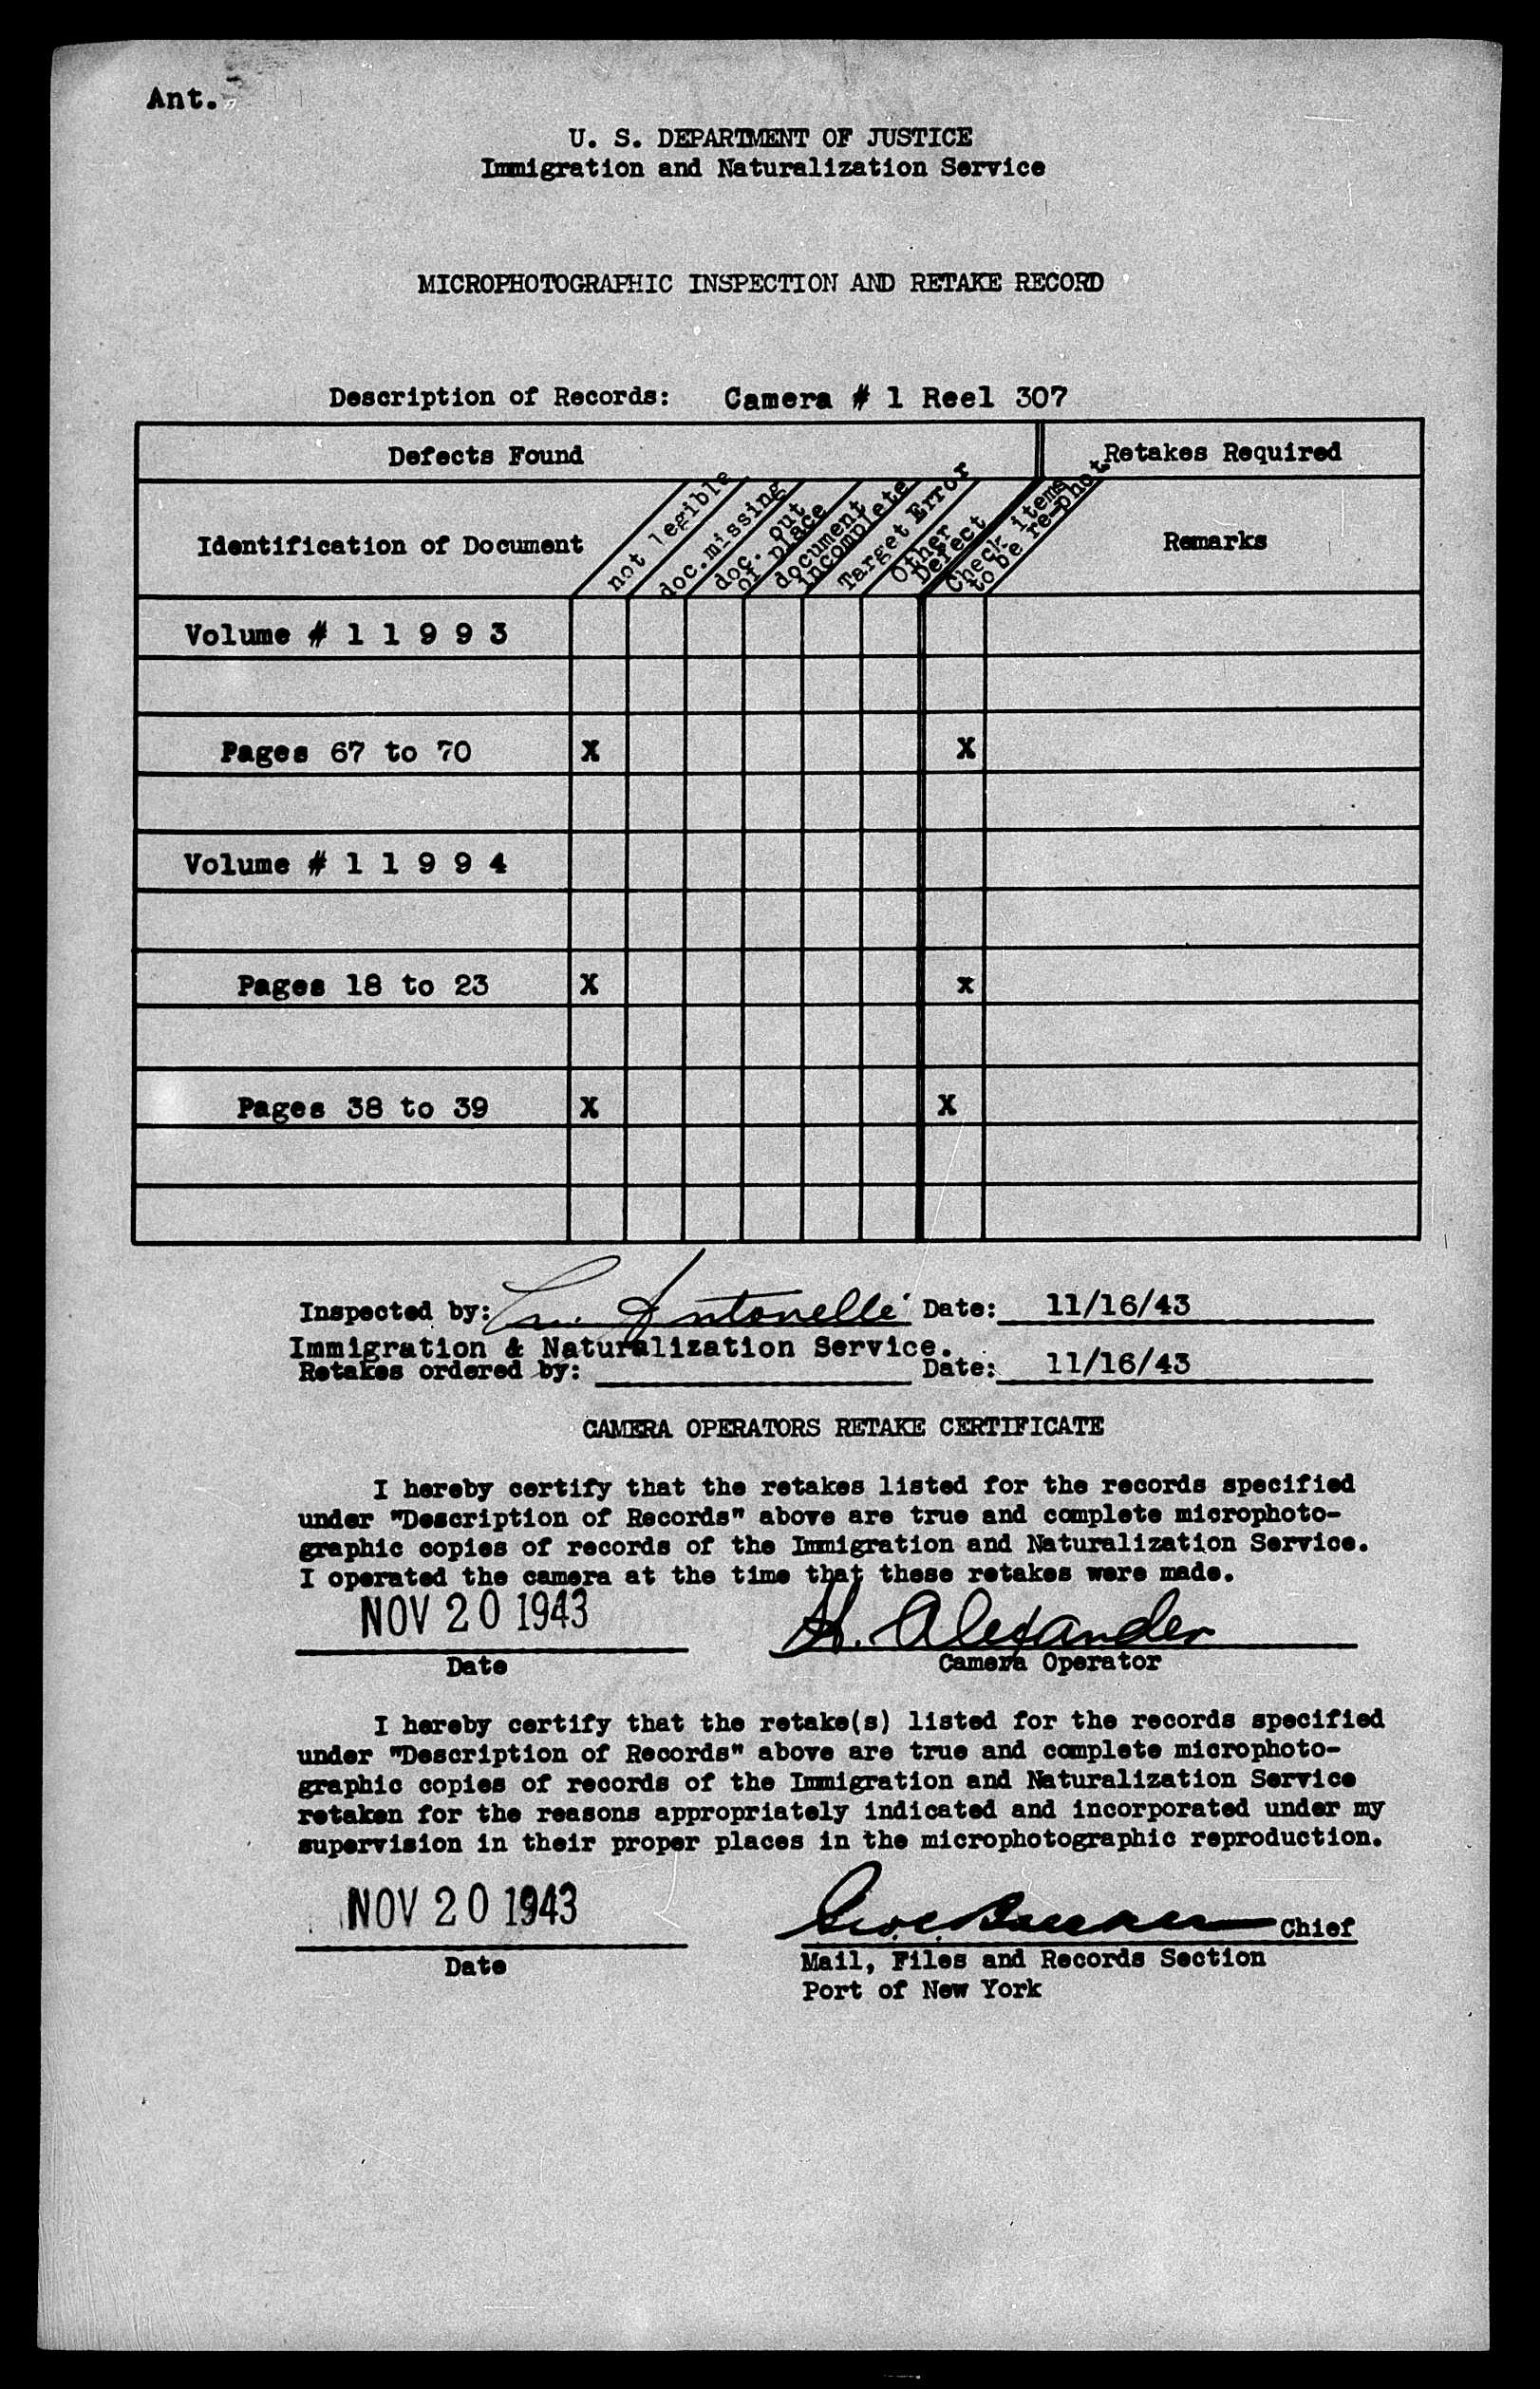 Ant.
U. S. DEPARTMENT OF JUSTICE
Immigration and Naturalization Service
MICROPHOTOGRAPHIC INSPECTION AND RETAKE RECORD
Description of Records: Camera # 1 Reel 307
Defects Found
Retakes Required
Identification of Document
not legible
doc.missing
doc. out
of place
document
incomplete
Target Error
Other
Defect
Check items
to be re-phot
Remarks
Volume # 1 1 9 9 3
Pages 67 to 70 X X
Volume # 1 1 9 9 4
Pages 18 to 23 X x
Pages 38 to 39 X X
Inspected by: Antonelli Date: 11/16/43
Immigration & Naturalization Service.
Retakes ordered by: Date: 11/16/43
CAMERA OPERATORS RETAKE CERTIFICATE
I hereby certify that the retakes listed for the records specified
under "Description of Records" above are true and complete microphoto-
graphic copies of records of the Immigration and Naturalization Service.
I operated the camera at the time that these retakes were made.
NOV 20 1943 H. Alexander
Date Camera Operator
I hereby certify that the retake(s) listed for the records specified
under "Description of Records" above are true and complete microphoto-
graphic copies of records of the Immigration and Naturalization Service
retaken for the reasons appropriately indicated and incorporated under my
supervision in their proper places in the microphotographic reproduction.
NOV 20 1943 Chief
Date Mail, Files and Records Section
Port of New York